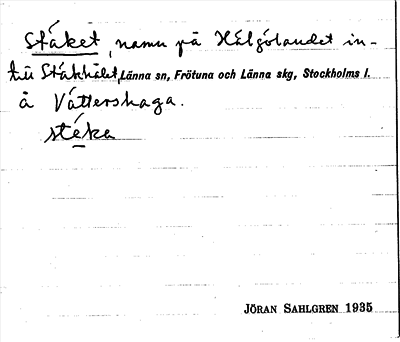 Stáket, namn på Hálgólandet in-
till Stákhálet, Länna sn, Frötuna och Länna skg, Stockholms l.
å Vátterskaga.
stéka
JÖRAN SAHLGREN 1935